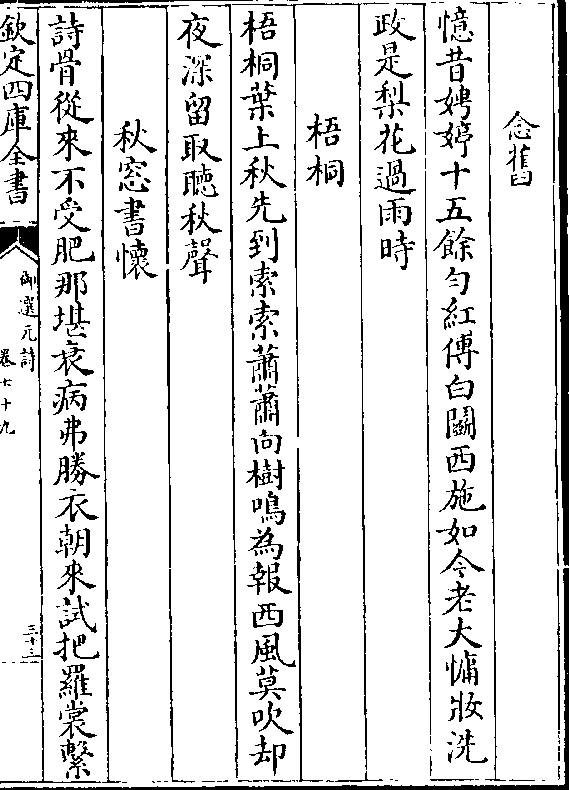 念舊
憶昔娉婷十五餘勻紅傅白闘西施如今老大慵妝洗
政是梨花過雨時
梧桐
梧桐葉上秋先到索索蕭蕭向樹鳴為報西風莫吹却
夜深留取聽秋聲
秋窓書懷
詩骨從來不受肥那堪衰病弗勝衣朝來試把羅裳繫
欽定四庫全書
御選元詩
卷七十九
三十三